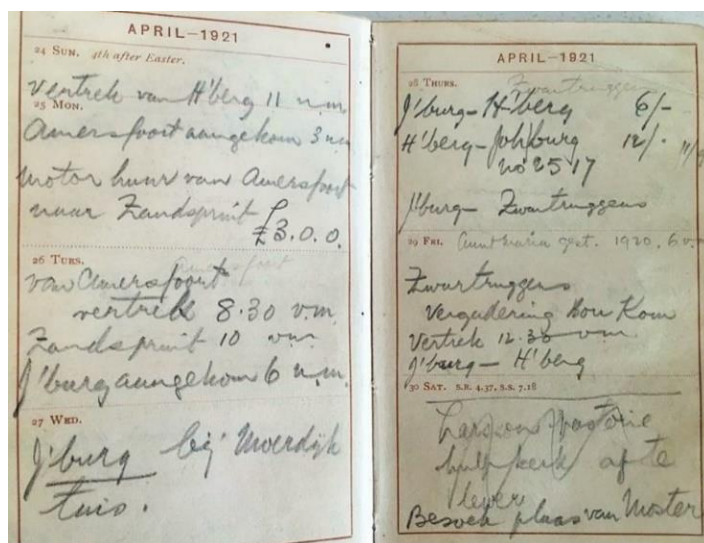 APRIL—1921
24 SUN. 4th after Easter.
Vertrek van H'berg 11 v.m.
25 MON.
Amersfoort aangekom 3 n.m.
Motor huur van Amersfoort
naar Zandspruit
£3.0.0.
26 TUES.
van Amersfoort
vertrek 8.30 v.m.
Zandspruit 10 v.m.
J'burg aangekom 6 n.m.
27 WED.
J'burg bij Moerdijk
tuis.
APRIL—1921
28 THURS. Zwartruggens
J'burg – H'berg 6/-
H'berg – Joh'burg 12/-
no 2517
J'burg – Zwartruggens
29 FRI. 1920. 6
Zwartruggens
Vergadering Bou Kom
Vertrek 12.30 v.m.
J'burg – H'berg
30 SAT. S.R. 4.37, S.S. 7.18
pastorie
hulpkerk af te
lever
Besoek plaas van Moster